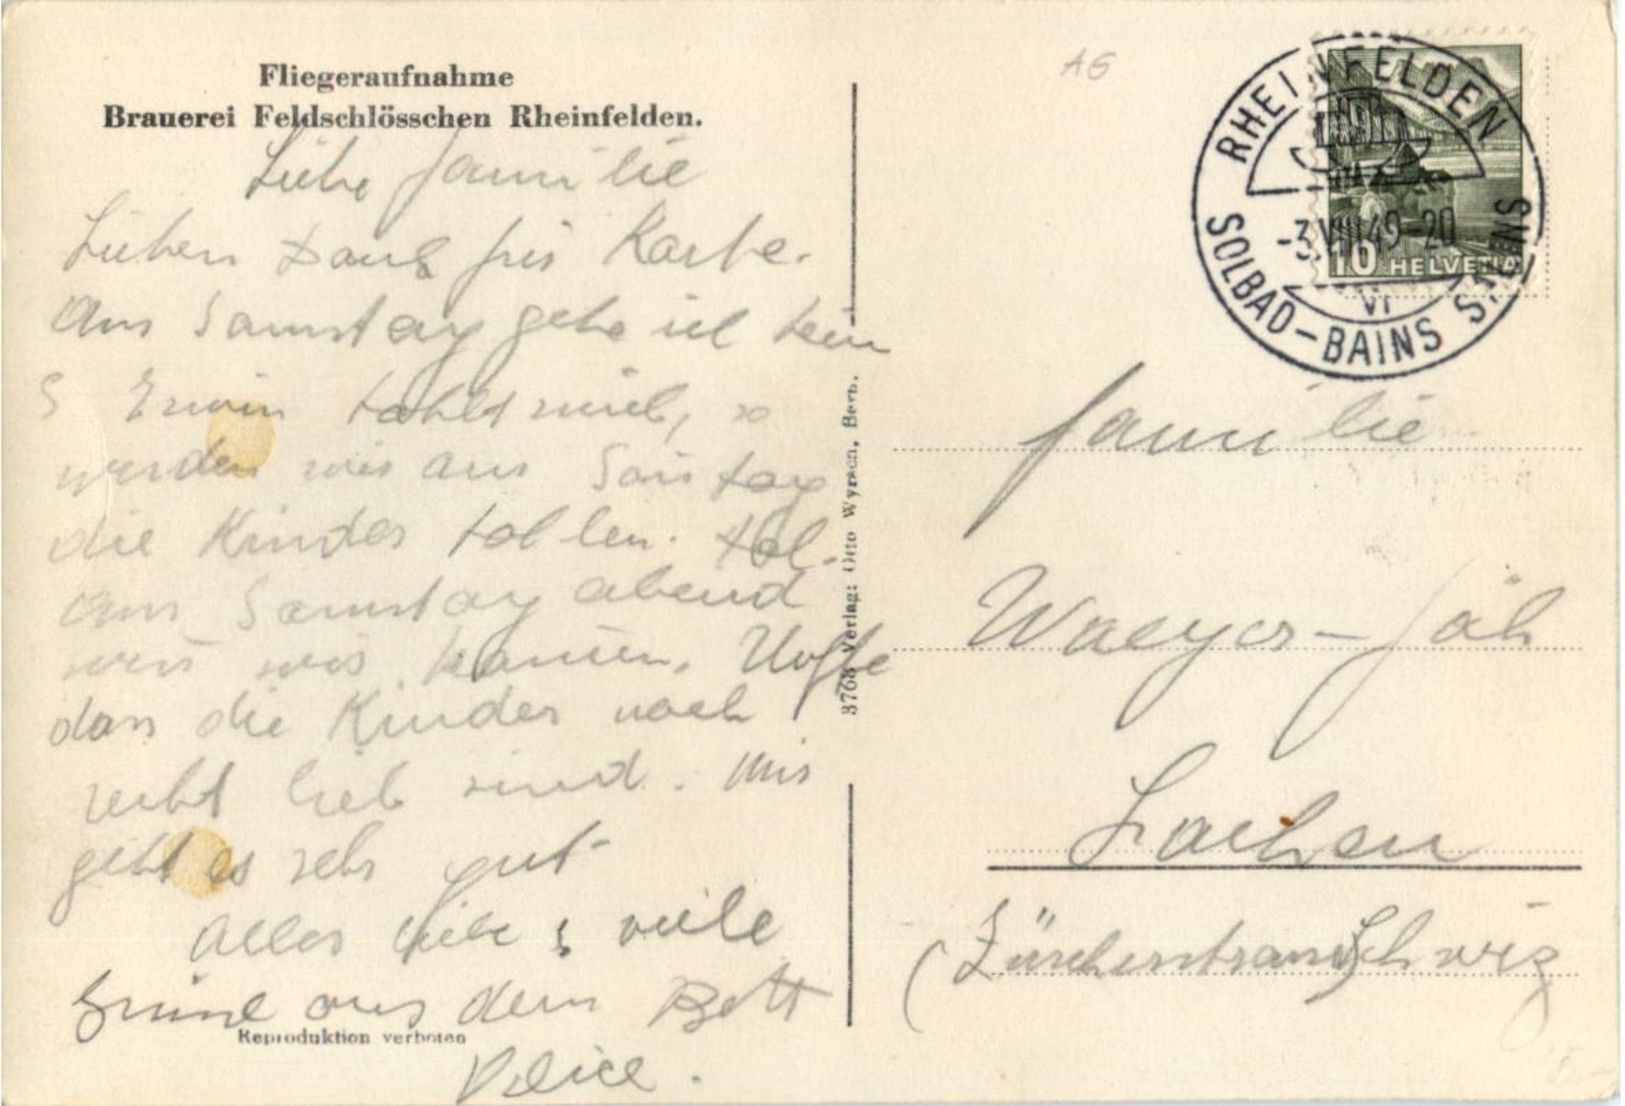 Fliegeraufnahme
Brauerei Feldschlösschen Rheinfelden.
Liebe Familie
Lieben Dank für Karte.
Am Samstag gehe ich heim
Erwin holt mich, so
werden wir am Samstag
die Kinder hollen.
am Samstag abend
wir kommen. Hoffe
dass die Kinder noch
recht lieb sind. Mir
geht es sehr gut
Alles liebe & viele
Grüsse aus dem Bett
Reproduktion verboten
3768 Verlag: Otto Wyrsch, Bern.
AG
RHEINFELDEN
-3.VIII.49-20
VI
SOLBAD-BAINS SALINS
10 HELVETIA
Familie
Lachen
(Zürcherstrasse) Schwiz